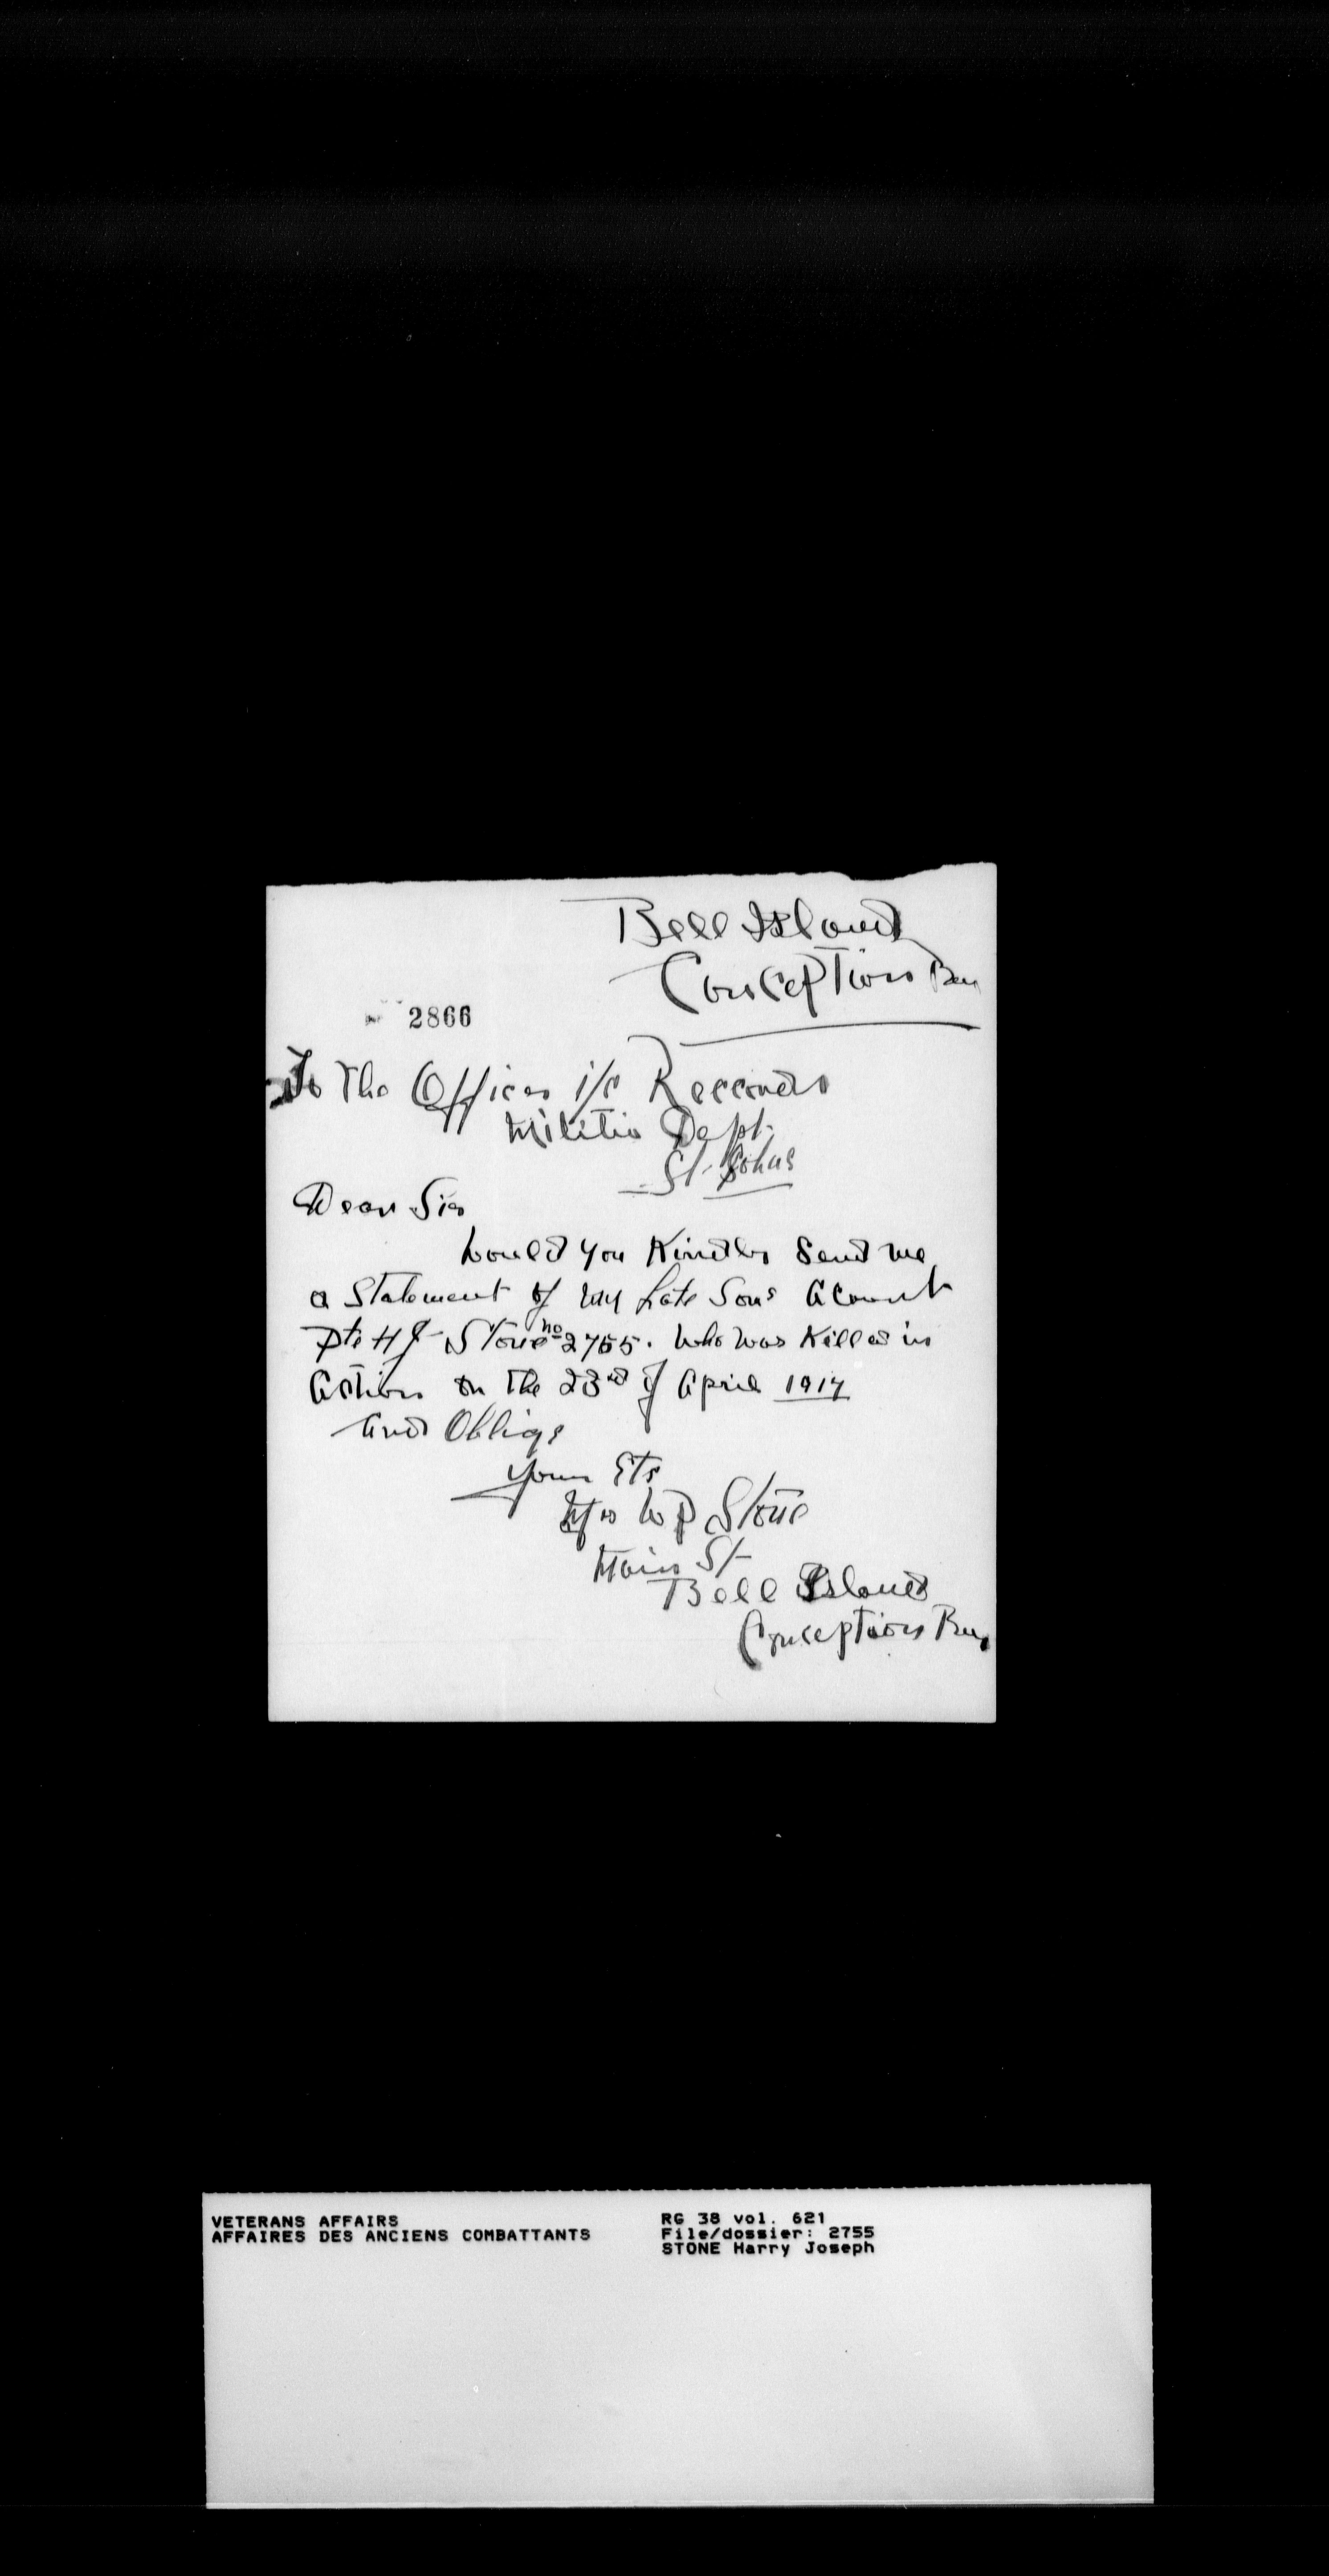 Bell Island
Conception Bay
2866
To The Officer i/c Records
Militia Dept.
St. Johns
Dear Sir
Would you Kindly Send me
a Statement of my Late Sons Acount
Pte H J Stone no 2755. Who was Killed in
Action on The 23rd of April 1917
and Oblige
Yours Etc
Mrs W P Stone
Main St
Bell Island
Conception Bay
VETERANS AFFAIRS
AFFAIRES DES ANCIENS COMBATTANTS
RG 38 vol. 621
File/dossier: 2755
STONE Harry Joseph